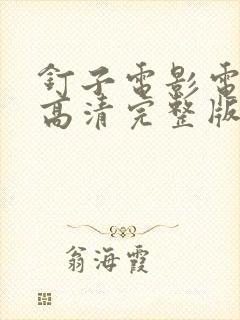 釘子電影電
高清完整版
翁海霞